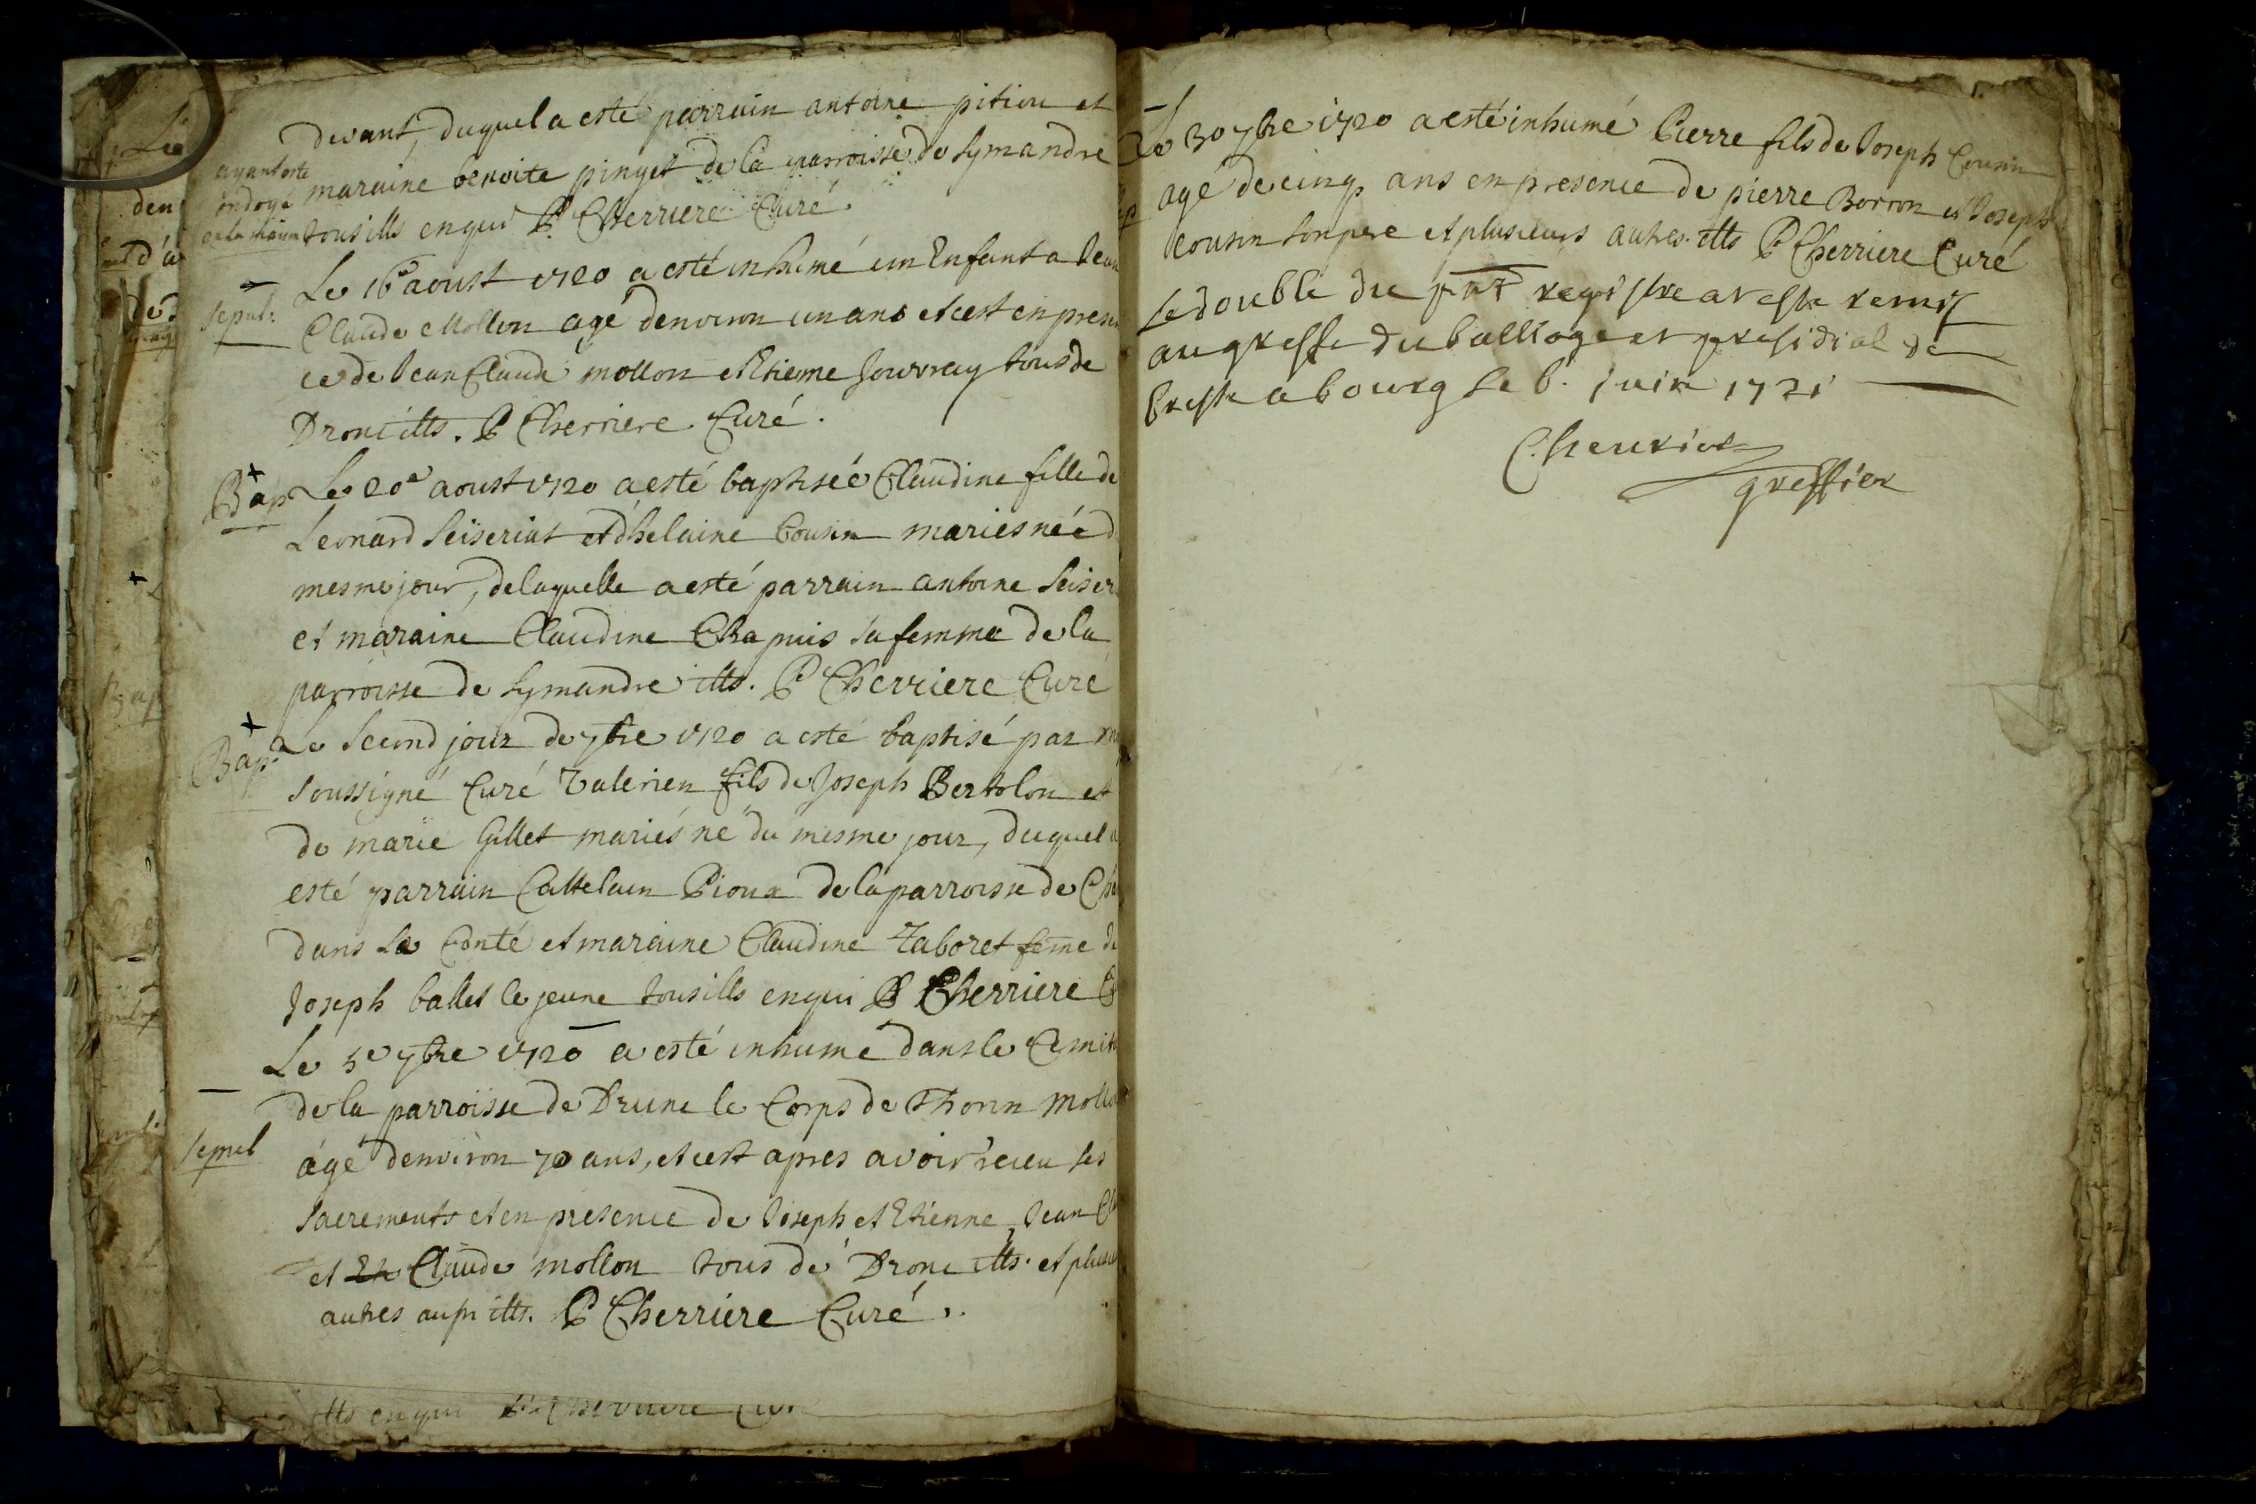 devant, duquel a esté parrain antoine pition et
ayant esté
ondoyé
maraine benoite pinget de la parroisse de Symandre
tous ills enqui P Cherriere Curé.
Sepul:
Le 16e aoust 1720 a esté inhumé un Enfant a Jean
Claude Mollon agé denviron un ans et cest en presen
ce de Jean Claude mollon et Etienne Jouvray tous de
Drom ills. P Cherriere Curé.
Bap
Le 20e aoust 1720 a esté baptisée Claudine fille de
Leonard Seiseriat et dhelaine Cousin mariés née d
mesme jour, de laquelle a esté parrain antoine Seiser
et maraine Claudine Chapuis sa femme de la
parroisse de Symandre ills. P Cherriere Curé
Bap.
Le Second jour de 7bre 1720 a esté baptisé par m
soussigné Curé Valerien fils de Joseph Bertolon et
de marie Gillet mariés né du mesme jour, duquel a
esté parrain Cattelain Pioux de la parroisse de Ch
dans le Conté et maraine Claudine Taboret feme de
Joseph ballet le jeune tous ills enqui P Cherriere C
Le 5e 7bre 1720 a esté inhumé dans le Cemit
de la parroisse de Drune le Corps de Thorin Mollo
Sepul
agé denviron 70 ans, et cest apres avoir receu ses
Sacrements et en presence de Joseph et Etienne, Jean Cl
et Et Claude mollon tous de Drom ills. et plusieu
autres aussi ills. P Cherriere Curé.
ills enqui P. Cherriere Cur
Le 30 7bre 1720 a esté inhumé Pierre fils de Joseph Cousin
agé de cinq ans en presence de pierre Borron et Joseph
Cousin son pere et plusieurs autres ills P Cherriere Curé
Le double du pnt registre a esté remis
au greffe du balliage et presidial de
bresse a bourg le 6. juin 1721
Cheuriot
greffier